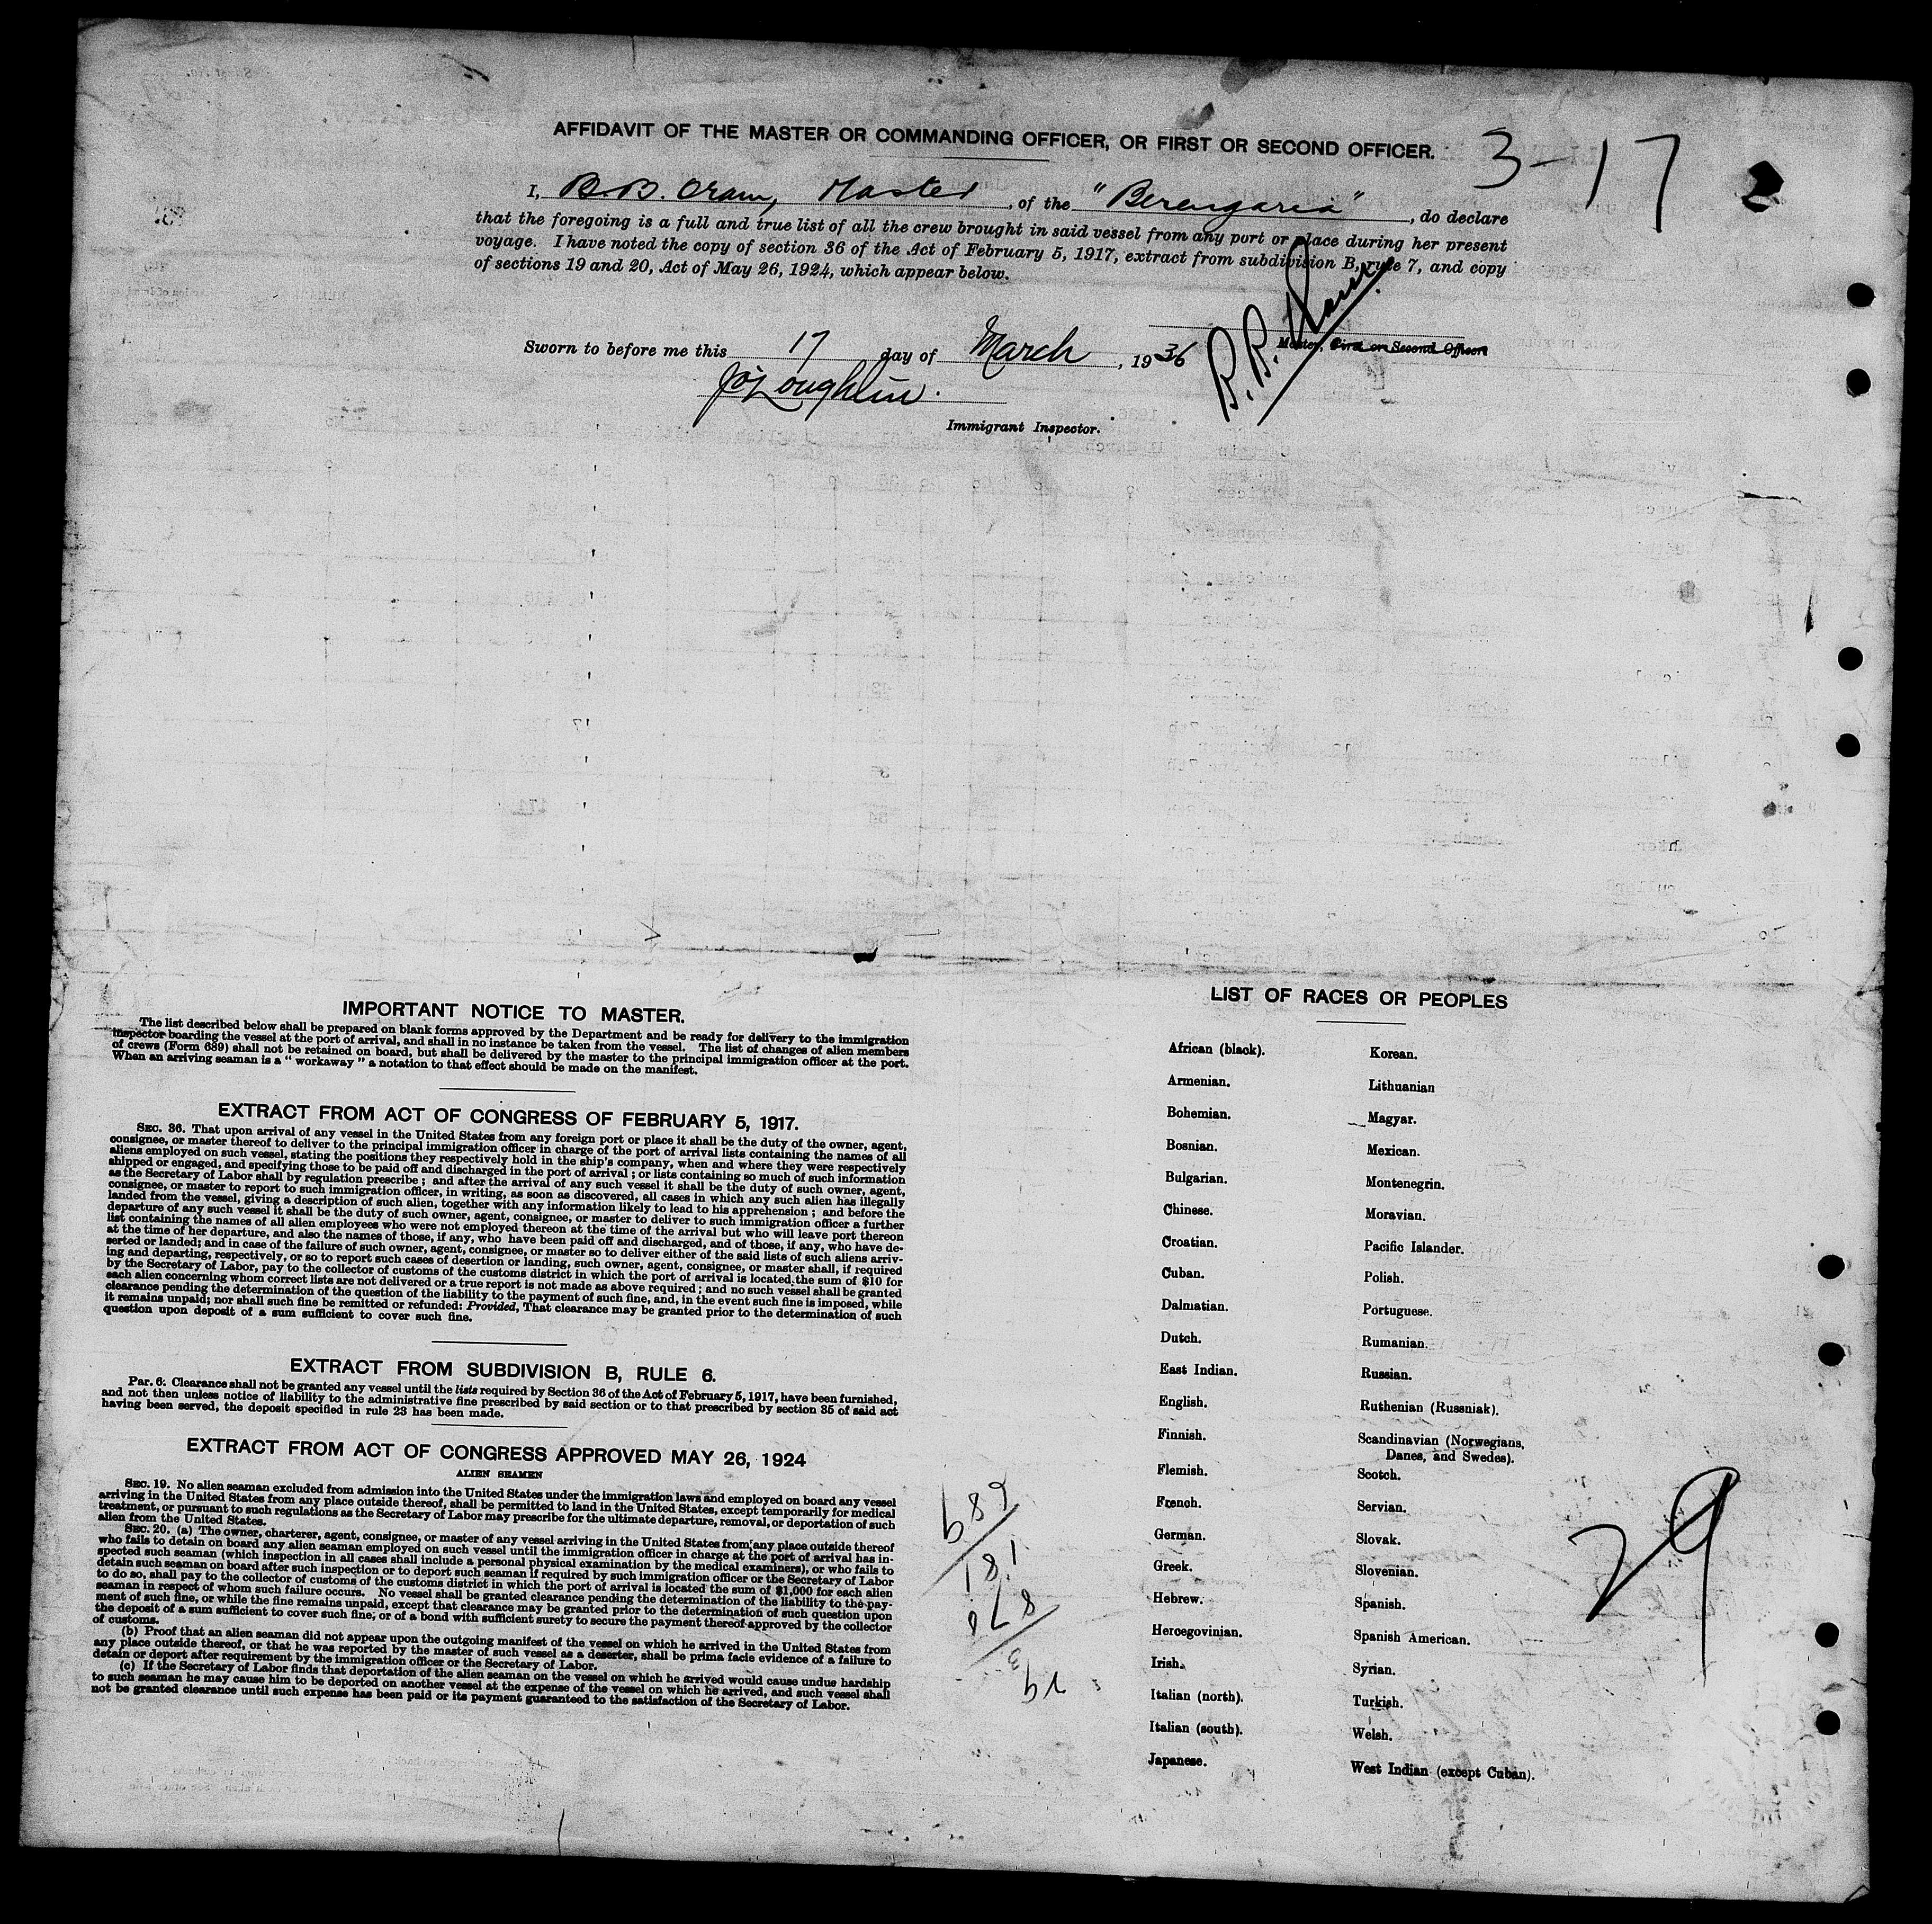 AFFIDAVIT OF THE MASTER OR COMMANDING OFFICER, OR FIRST OR SECOND OFFICER.
3-17
I, B.B. Oram, Master, of the "Berengaria", do declare
that the foregoing is a full and true list of all the crew brought in said vessel from any port or place during her present
voyage. I have noted the copy of section 36 of the Act of February 5, 1917, extract from subdivision B, rule 7, and copy
of sections 19 and 20, Act of May 26, 1924, which appear below.
B. B. Oram
Master, First or Second Officer
Sworn to before me this 17 day of March, 1936
J O'Loughlin.
Immigrant Inspector.
IMPORTANT NOTICE TO MASTER.
The list described below shall be prepared on blank forms approved by the Department and be ready for delivery to the immigration
inspector boarding the vessel at the port of arrival, and shall in no instance be taken from the vessel. The list of changes of alien members
of crews (Form 689) shall not be retained on board, but shall be delivered by the master to the principal immigration officer at the port.
When an arriving seaman is a "workaway" a notation to that effect should be made on the manifest.
EXTRACT FROM ACT OF CONGRESS OF FEBRUARY 5, 1917.
SEC. 36. That upon arrival of any vessel in the United States from any foreign port or place it shall be the duty of the owner, agent,
consignee, or master thereof to deliver to the principal immigration officer in charge of the port of arrival lists containing the names of all
aliens employed on such vessel, stating the positions they respectively hold in the ship's company, when and where they were respectively
shipped or engaged, and specifying those to be paid off and discharged in the port of arrival; or lists containing so much of such information
as the Secretary of Labor shall by regulation prescribe; and after the arrival of any such vessel it shall be the duty of such owner, agent,
consignee, or master to report to such immigration officer, in writing, as soon as discovered, all cases in which any such alien has illegally
landed from the vessel, giving a description of such alien, together with any information likely to lead to his apprehension; and before the
departure of any such vessel it shall be the duty of such owner, agent, consignee, or master to deliver to such immigration officer a further
list containing the names of all alien employees who were not employed thereon at the time of the arrival but who will leave port thereon
at the time of her departure, and also the names of those, if any, who have been paid off and discharged, and of those, if any, who have de-
serted or landed; and in case of the failure of such owner, agent, consignee, or master so to deliver either of the said lists of such aliens arriv-
ing and departing, respectively, or so to report such cases of desertion or landing, such owner, agent, consignee, or master shall, if required
by the Secretary of Labor, pay to the collector of customs of the customs district in which the port of arrival is located the sum of $10 for
each alien concerning whom correct lists are not delivered or a true report is not made as above required; and no such vessel shall be granted
clearance pending the determination of the question of the liability to the payment of such fine, and, in the event such fine is imposed, while
it remains unpaid; nor shall such fine be remitted or refunded: Provided, That clearance may be granted prior to the determination of such
question upon deposit of a sum sufficient to cover such fine.
EXTRACT FROM SUBDIVISION B, RULE 6.
Par. 6. Clearance shall not be granted any vessel until the lists required by Section 36 of the Act of February 5, 1917, have been furnished,
and not then unless notice of liability to the administrative fine prescribed by said section or to that prescribed by section 35 of said act
having been served, the deposit specified in rule 23 has been made.
EXTRACT FROM ACT OF CONGRESS APPROVED MAY 26, 1924
ALIEN SEAMEN
SEC. 19. No alien seaman excluded from admission into the United States under the immigration laws and employed on board any vessel
arriving in the United States from any place outside thereof, shall be permitted to land in the United States, except temporarily for medical
treatment, or pursuant to such regulations as the Secretary of Labor may prescribe for the ultimate departure, removal, or deportation of such
alien from the United States.
SEC. 20. (a) The owner, charterer, agent, consignee, or master of any vessel arriving in the United States from any place outside thereof
who fails to detain on board any alien seaman employed on such vessel until the immigration officer in charge at the port of arrival has in-
spected such seaman (which inspection in all cases shall include a personal physical examination by the medical examiners), or who fails to
detain such seaman on board after such inspection or to deport such seaman if required by such immigration officer or the Secretary of Labor
to do so, shall pay to the collector of customs of the customs district in which the port of arrival is located the sum of $1,000 for each alien
seaman in respect of whom such failure occurs. No vessel shall be granted clearance pending the determination of the liability to the pay-
ment of such fine, or while the fine remains unpaid, except that clearance may be granted prior to the determination of such question upon
the deposit of a sum sufficient to cover such fine, or of a bond with sufficient surety to secure the payment thereof approved by the collector
of customs.
(b) Proof that an alien seaman did not appear upon the outgoing manifest of the vessel on which he arrived in the United States from
any place outside thereof, or that he was reported by the master of such vessel as a deserter, shall be prima facie evidence of a failure to
detain or deport after requirement by the immigration officer or the Secretary of Labor.
(c) If the Secretary of Labor finds that deportation of the alien seaman on the vessel on which he arrived would cause undue hardship
to such seaman he may cause him to be deported on another vessel at the expense of the vessel on which he arrived, and such vessel shall
not be granted clearance until such expense has been paid or its payment guaranteed to the satisfaction of the Secretary of Labor.
689
181
870
LIST OF RACES OR PEOPLES
African (black).
Armenian.
Bohemian.
Bosnian.
Bulgarian.
Chinese.
Croatian.
Cuban.
Dalmatian.
Dutch.
East Indian.
English.
Finnish.
Flemish.
French.
German.
Greek.
Hebrew.
Hercegovinian.
Irish.
Italian (north).
Italian (south).
Japanese.
Korean.
Lithuanian
Magyar.
Mexican.
Montenegrin.
Moravian.
Pacific Islander.
Polish.
Portuguese.
Rumanian.
Russian.
Ruthenian (Russniak).
Scandinavian (Norwegians,
Danes, and Swedes).
Scotch.
Servian.
Slovak.
Slovenian.
Spanish.
Spanish American.
Syrian.
Turkish.
Welsh.
West Indian (except Cuban).
29